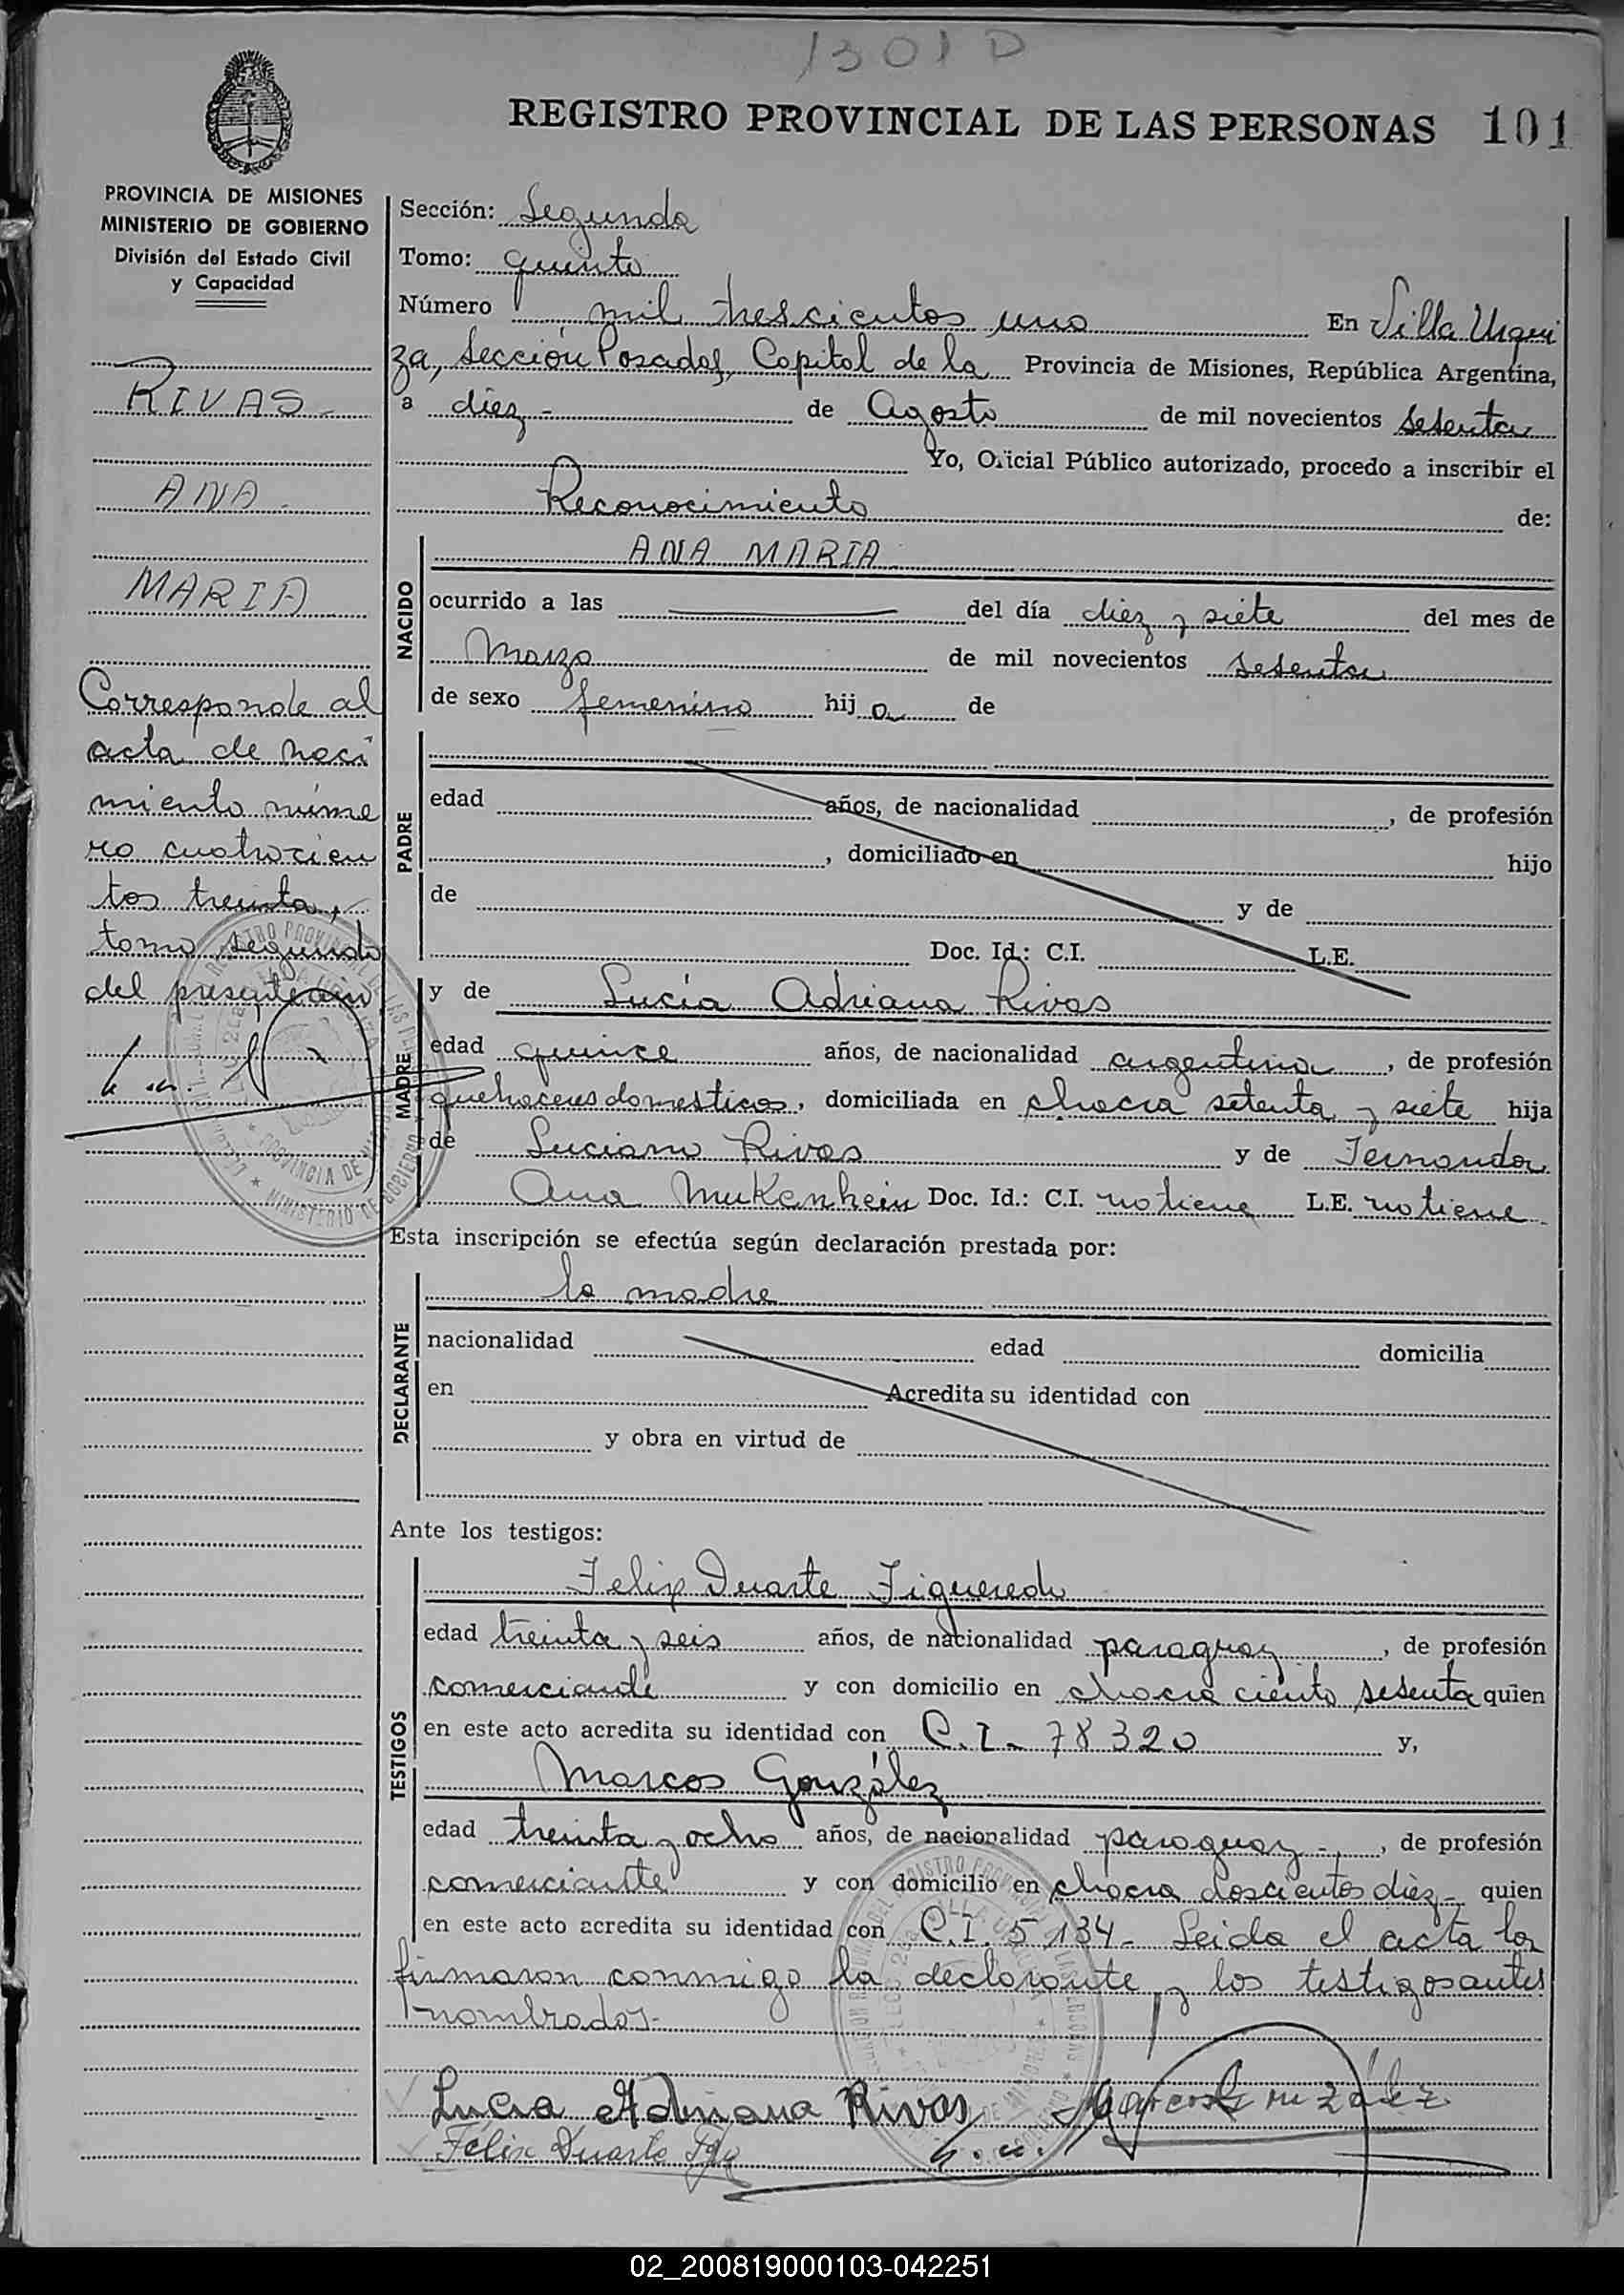 1301 D
REGISTRO PROVINCIAL DE LAS PERSONAS 101
PROVINCIA DE MISIONES
MINISTERIO DE GOBIERNO
División del Estado Civil
y Capacidad
RIVAS
ANA
MARIA
Corresponde al
acta de naci
miento núme
ro cuatrocien
tos treinta,
tomo segundo
del presente
Sección: Segunda
Tomo: quinto
Número mil trescientos uno En Villa Urqui
za, Sección Posadas, Capital de la Provincia de Misiones, República Argentina,
a diez - de Agosto de mil novecientos sesenta
Yo, Oficial Público autorizado, procedo a inscribir el
Reconocimiento de:
NACIDO
ANA MARIA
ocurrido a las del día diez y siete del mes de
Marzo de mil novecientos sesenta
de sexo femenino hija de
PADRE
edad años, de nacionalidad , de profesión
, domiciliado en hijo
de y de
Doc. Id.: C.I. L.E.
MADRE
y de Lucia Adriana Rivas
edad quince años, de nacionalidad argentina, de profesión
quehaceres domesticos, domiciliada en chacra setenta y siete hija
de Luciano Rivas y de Fernanda
Ana Mukenhein Doc. Id.: C.I. no tiene L.E. no tiene
Esta inscripción se efectúa según declaración prestada por:
DECLARANTE
la madre
nacionalidad edad domicilia
en Acredita su identidad con
y obra en virtud de
Ante los testigos:
TESTIGOS
Felix Duarte Figueredo
edad treinta y seis años, de nacionalidad paraguay, de profesión
comerciante y con domicilio en chacra ciento sesenta quien
en este acto acredita su identidad con C.I. 78320 y,
Marcos González
edad treinta y ocho años, de nacionalidad paraguay -, de profesión
comerciante y con domicilio en chacra doscientos diez - quien
en este acto acredita su identidad con C.I. 5134- Leida el acta la
firmaron conmigo la declarante y los testigos antes
nombrados-
Lucia Adriana Rivas
Felix Duarte
02_200819000103-042251